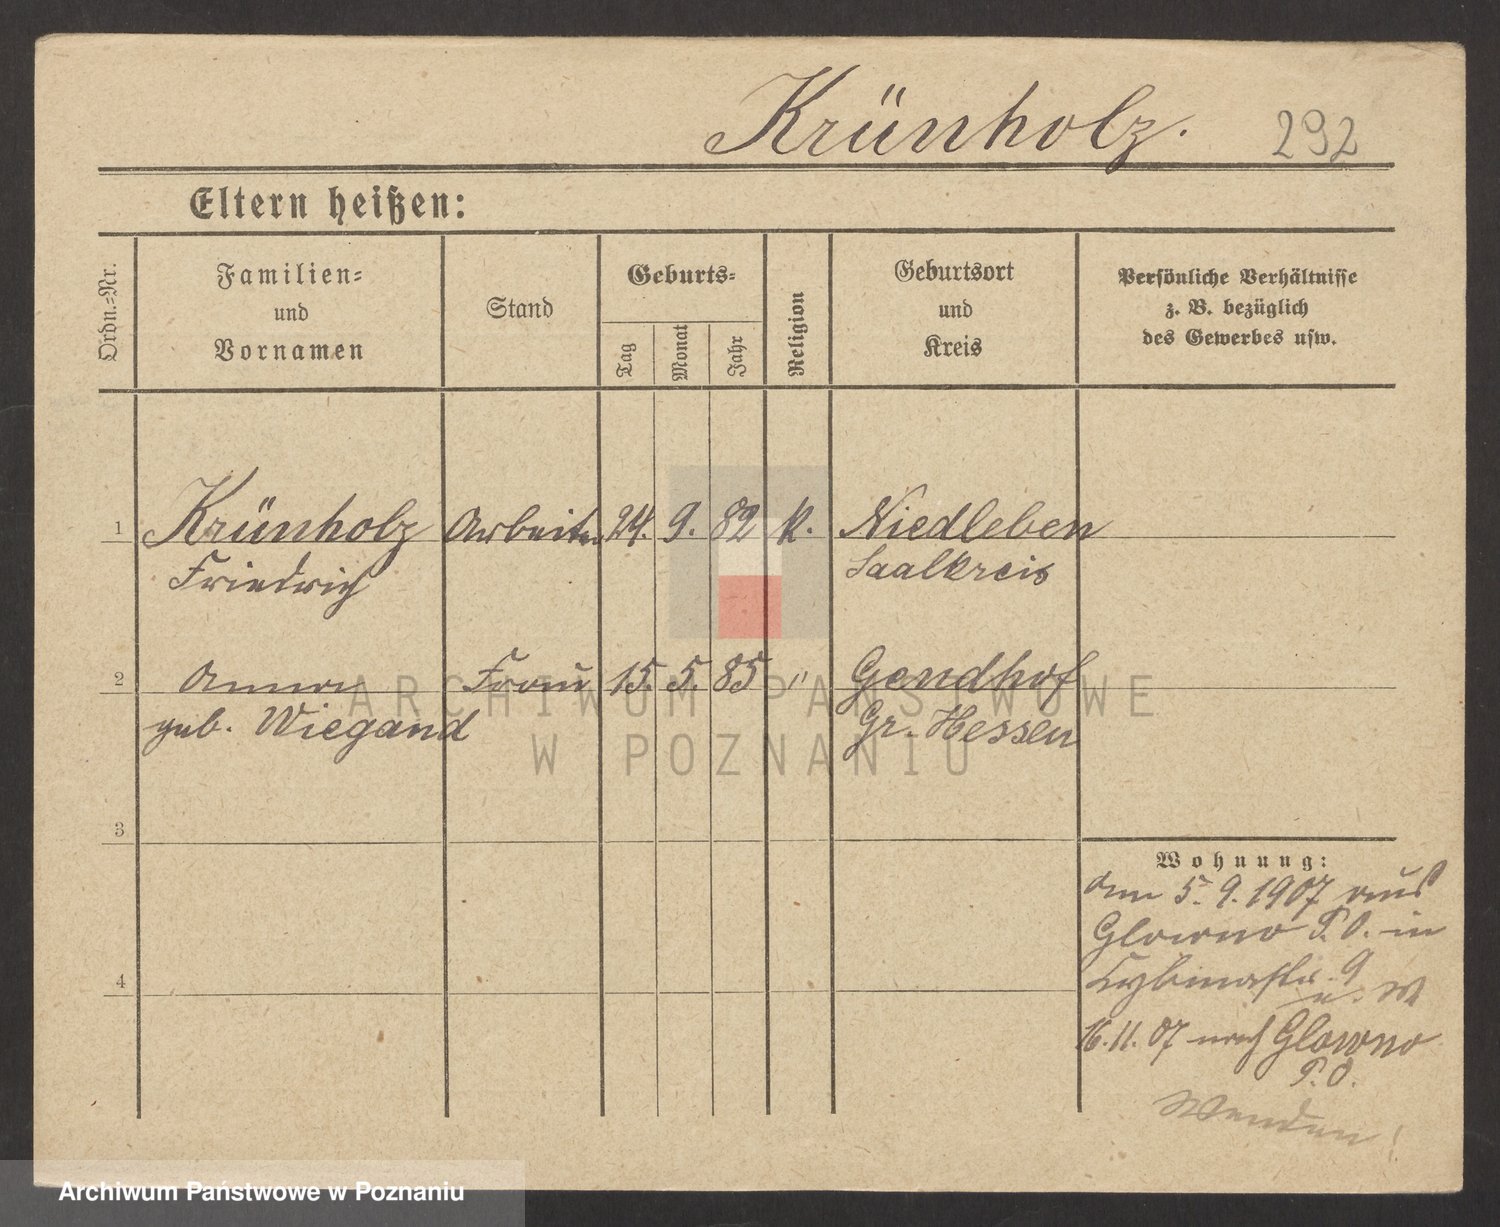 Krünholz.
292
Eltern heißen:
Ordn.-Nr.
Familien-
und
Vornamen
Stand
Geburts-
Tag
Monat
Jahr
Religion
Geburtsort
und
Kreis
Persönliche Verhältnisse
z. B. bezüglich
des Gewerbes usw.
1 Krünholz Arbeiter 24. 9. 82 k. Niedleben
Friedrich Saalkreis
2 Anna Frau 15. 5. 85 " Gendhof
geb. Wiegand Gr. Hessen
3
Wohnung:
am 5.9.1907 aus
Glowno P.O. in
Cybinastr. 9
4
16.11.07 nach Glowno
P.O.
Wenden!
ARCHIWUM PAŃSTWOWE
W POZNANIU
Archiwum Państwowe w Poznaniu